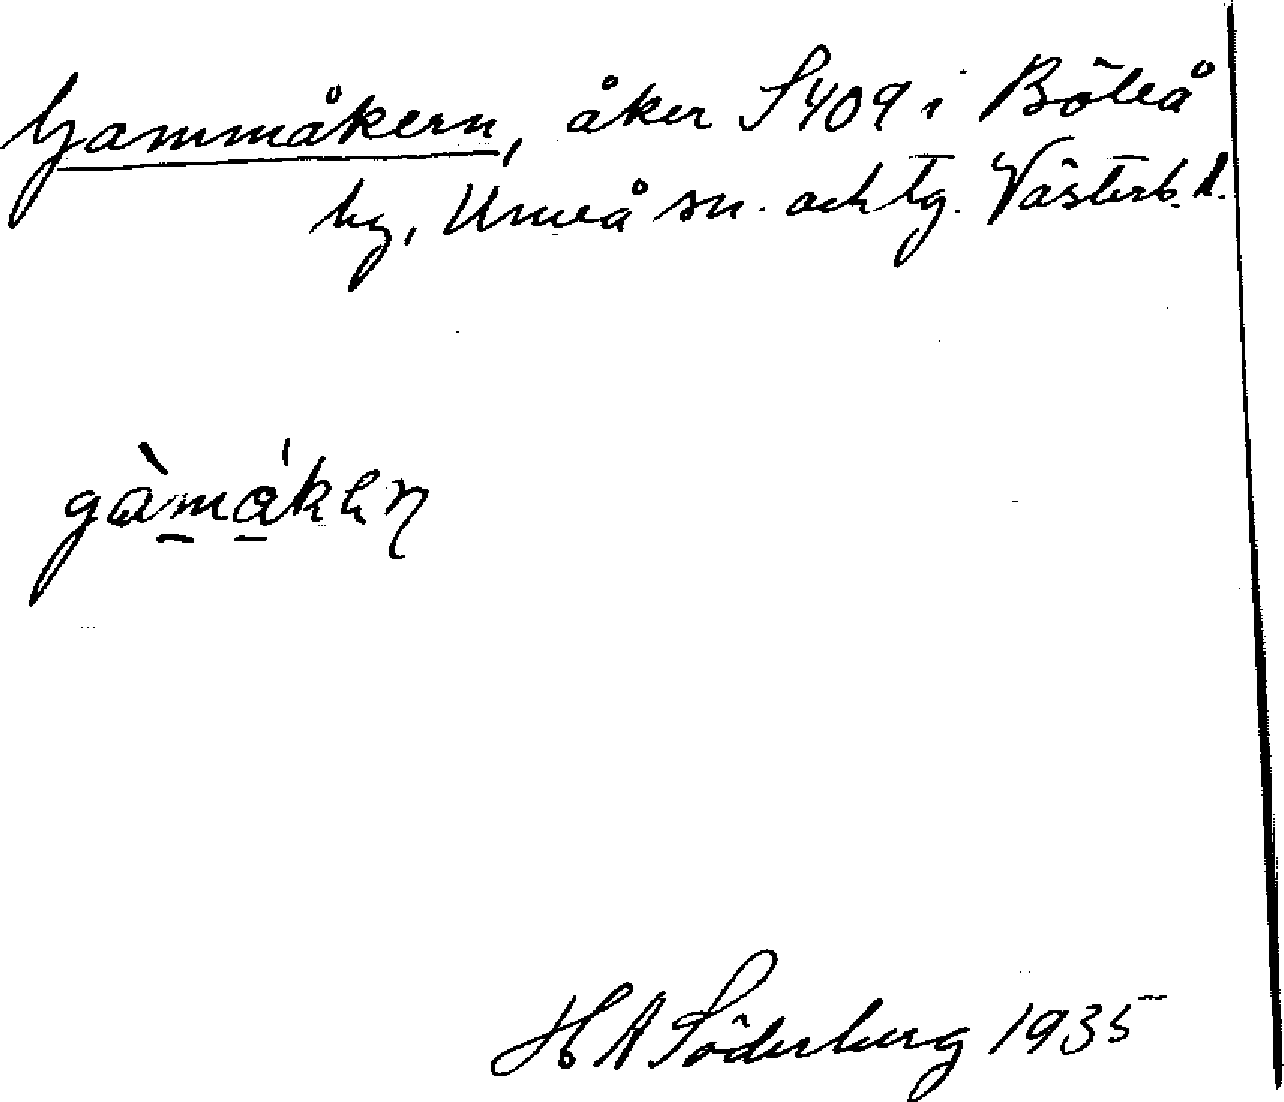 Gammåkern, åker S409 i Böleå
by, Umeå sn. och tg. Västerb. l.
gàmåkęn
H A Söderberg 1935